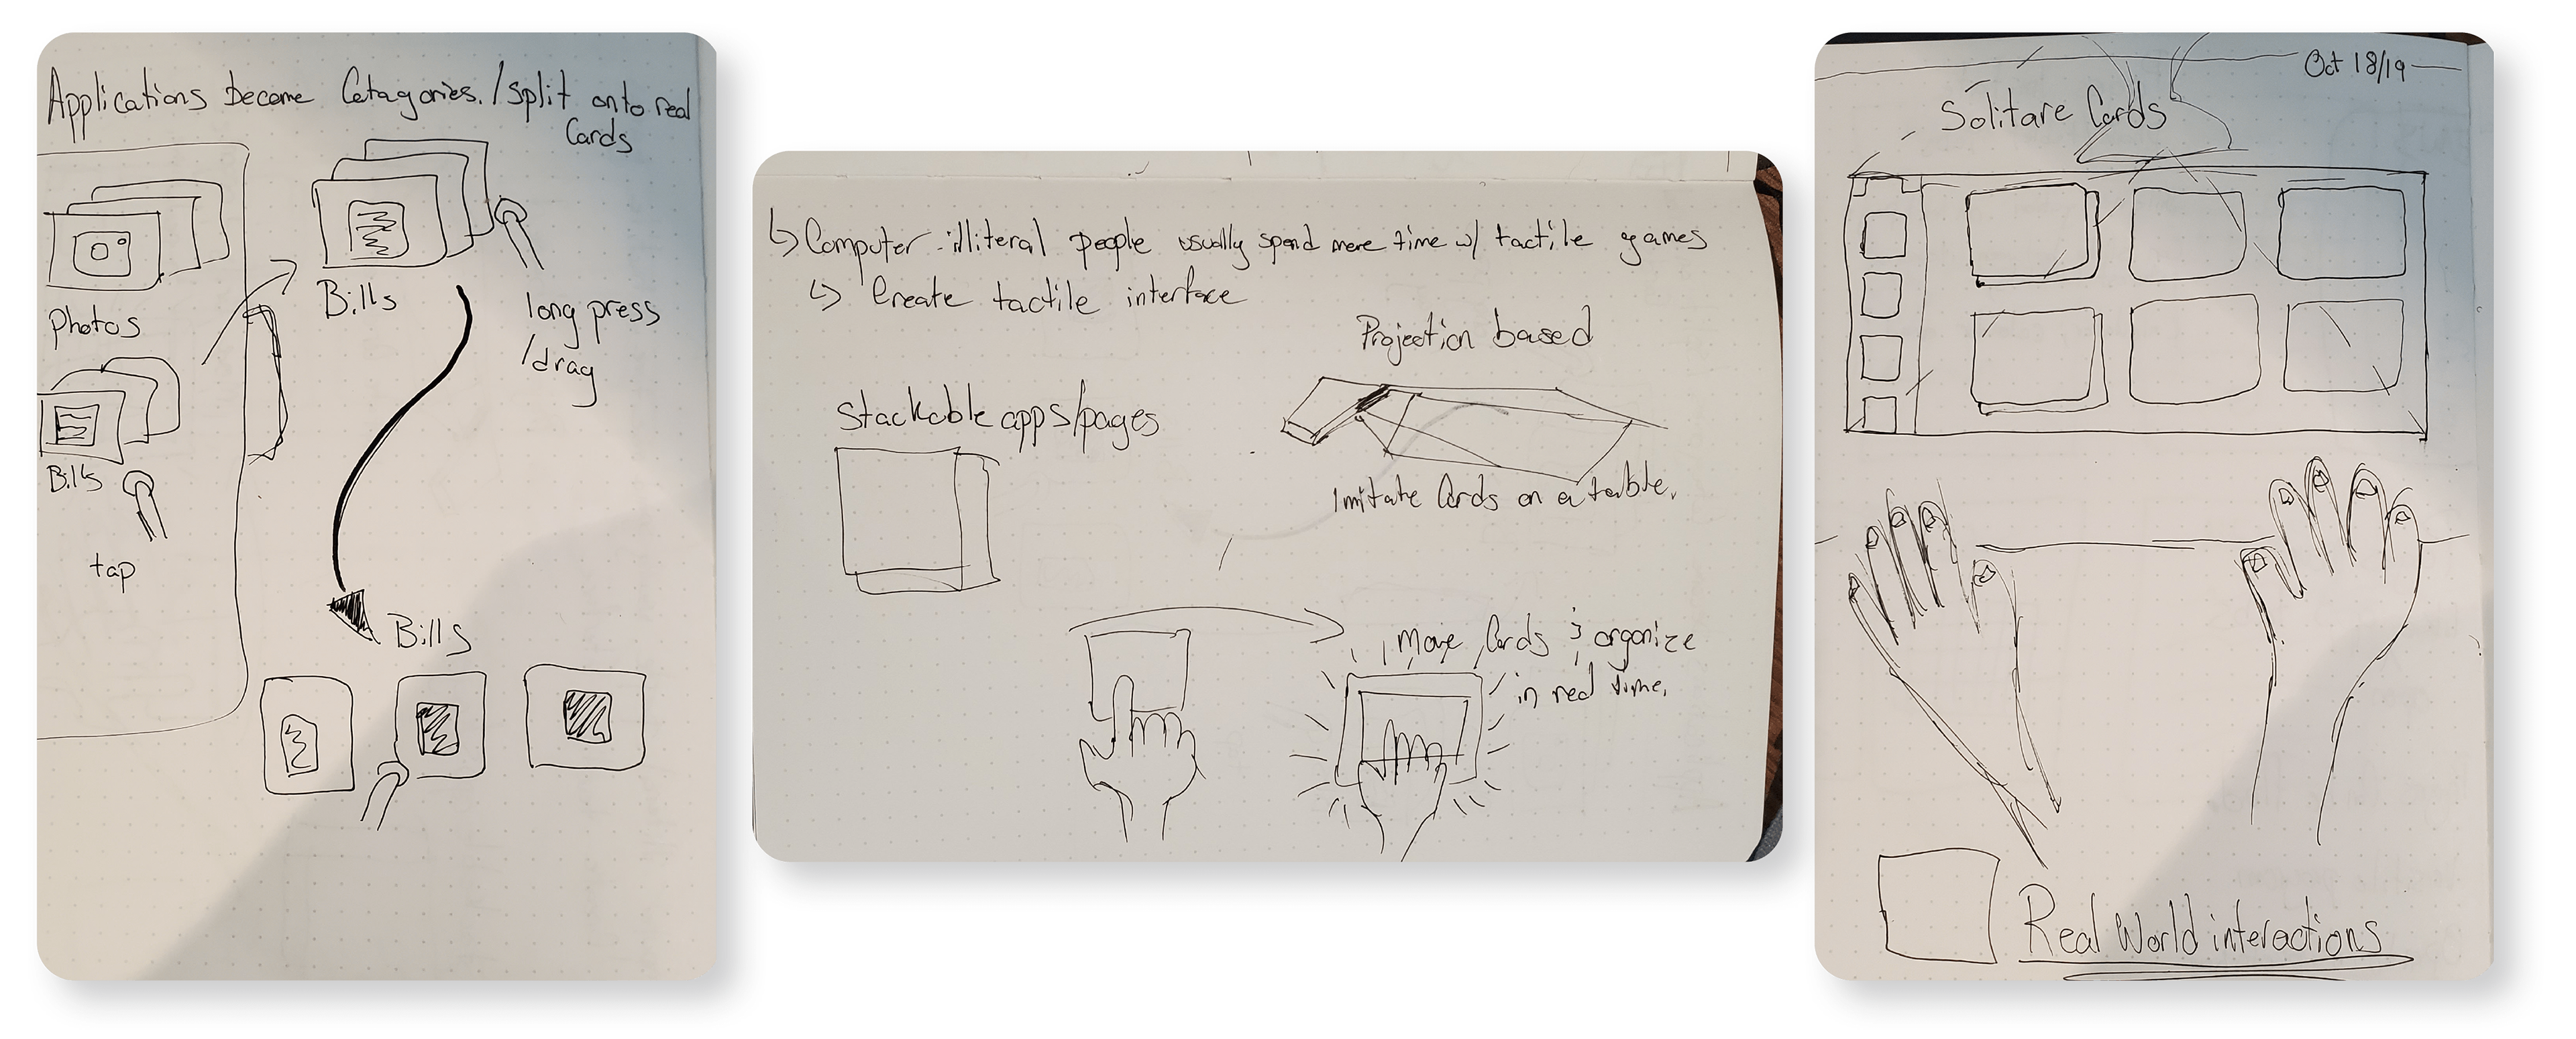 Applications become Catagories. / split onto real
Cards
Photos
Bills
tap
Bills
long press
/drag
Bills
↳ Computer-illiteral people usually spend more time w/ tactile games
↳ Create tactile interface
Projection based
Stackable apps/pages
Imitate Cards on a table.
Move Cards & organize
in real time.
Oct 18/19
Solitare Cards
Real World interactions